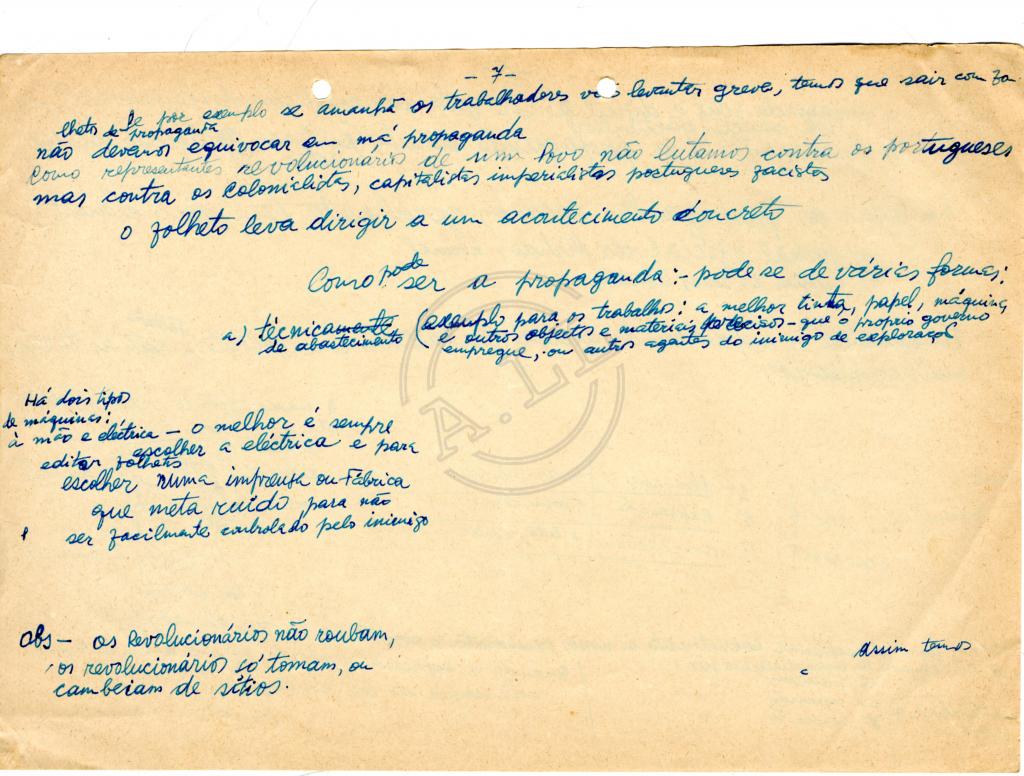 - 7 -
Se por exemplo se amanhã os trabalhadores vão levantar greve, temos que sair com fo
lhetos de propaganda
não devemos equivocar em má propaganda
Como representantes revolucionários de um Povo não lutamos contra os portugueses
mas contra os Colonialistas, capitalistas imperialistas portugueses facistas
o folheto leva dirigir a um acontecimento concreto
Como pode ser a propaganda: - pode se de várias formas:
a) técnicamente (exemplo para os trabalhos: a melhor tinta, papel, máquinas
de abastecimento e outros objectos e matérias precisos - que o proprio governo
empregue, ou outros agentes do inimigo de exploração
Há dois tipos
de máquinas:
à mão e eléctrica - o melhor é sempre
escolher a eléctrica e para
editar folhetos
escolher numa imprensa ou Fábrica
que meta ruído para não
ser facilmente controlado pelo inimigo
Obs - os Revolucionários não roubam,
os revolucionários só tomam, ou
cambeiam de sítios.
Assim temos
A.LL